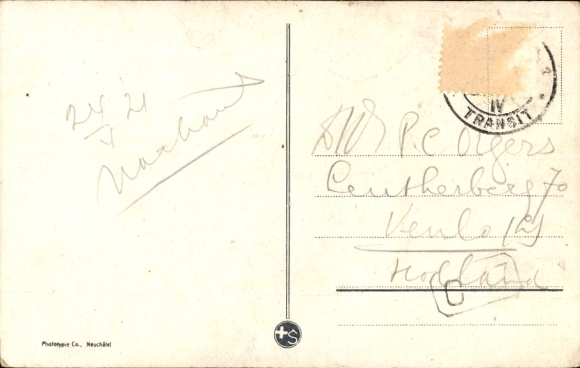 24/4 '21
IV
TRANSIT
P.C. Orgers
Leutherberg 70
Venlo (L)
Holland
C
+S
Phototypie Co., Neuchâtel